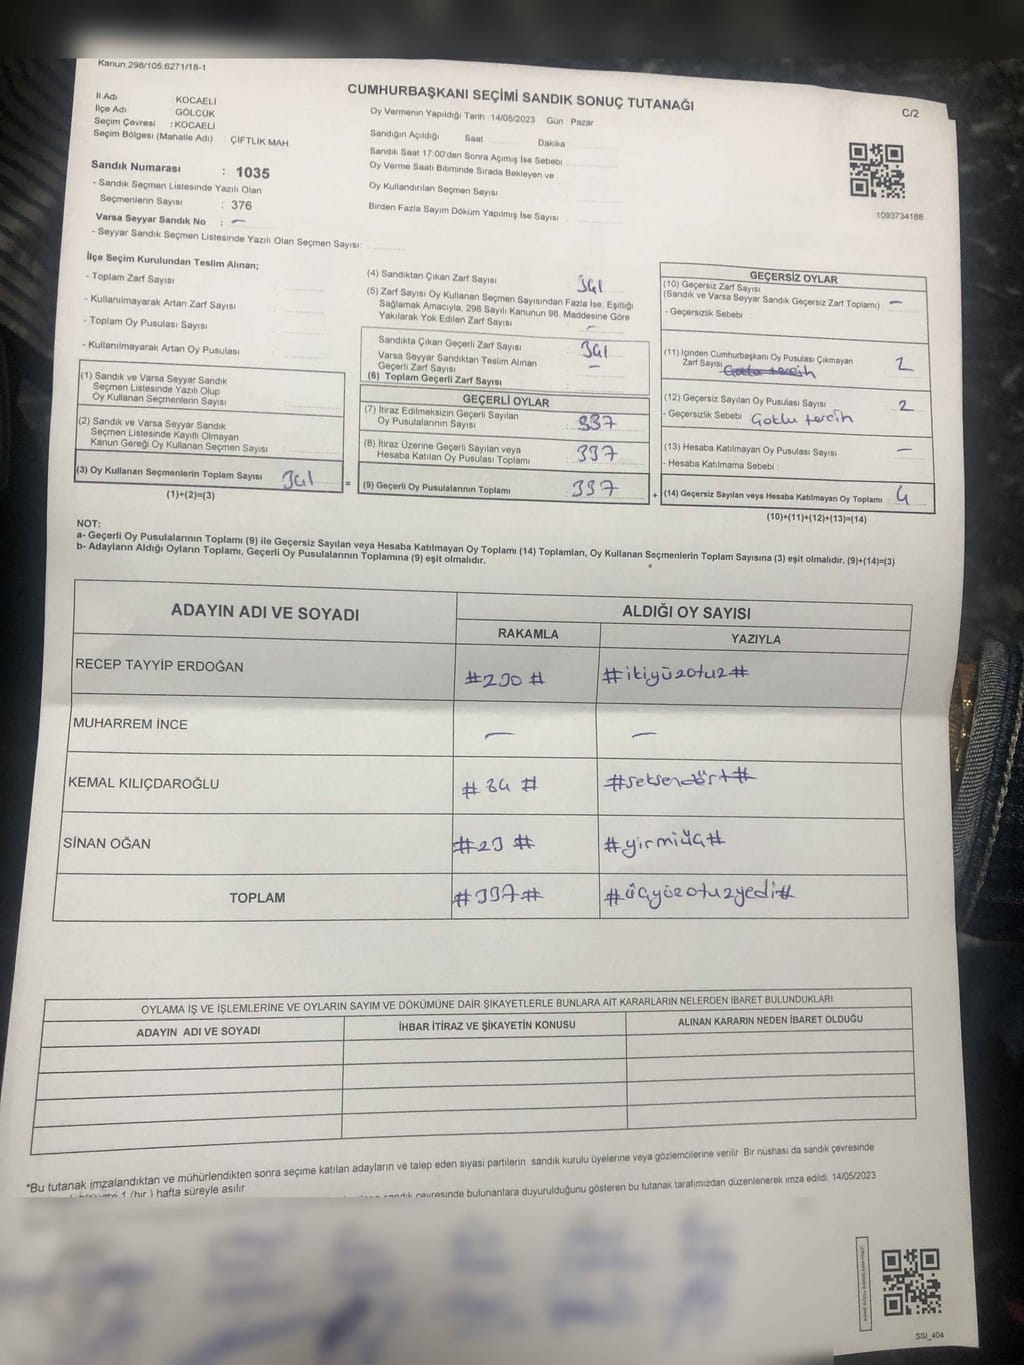 Kanun.298/105.6271/18-1
CUMHURBAŞKANI SEÇİMİ SANDIK SONUÇ TUTANAĞI
C/2
İl Adı KOCAELİ
İlçe Adı GÖLCÜK
Seçim Çevresi : KOCAELİ
Seçim Bölgesi (Mahalle Adı) : ÇİFTLİK MAH.
Oy Vermenin Yapıldığı Tarih : 14/05/2023 Gün : Pazar
Sandığın Açıldığı Saat Dakika
Sandık Saat 17:00'den Sonra Açımış İse Sebebi
Oy Verme Saati Bitiminde Sırada Bekleyen ve
Oy Kullandırılan Seçmen Sayısı
Birden Fazla Sayım Döküm Yapılmış İse Sayısı
1093734188
Sandık Numarası : 1035
- Sandık Seçmen Listesinde Yazılı Olan
Seçmenlerin Sayısı : 376
Varsa Seyyar Sandık No : —
- Seyyar Sandık Seçmen Listesinde Yazılı Olan Seçmen Sayısı:
İlçe Seçim Kurulundan Teslim Alınan;
- Toplam Zarf Sayısı
- Kullanılmayarak Artan Zarf Sayısı
- Toplam Oy Pusulası Sayısı
- Kullanılmayarak Artan Oy Pusulası
(1) Sandık ve Varsa Seyyar Sandık
Seçmen Listesinde Yazılı Olup
Oy Kullanan Seçmenlerin Sayısı
(2) Sandık ve Varsa Seyyar Sandık
Seçmen Listesinde Kayıtlı Olmayan
Kanun Gereği Oy Kullanan Seçmen Sayısı
(3) Oy Kullanan Seçmenlerin Toplam Sayısı 341
(1)+(2)=(3)
(4) Sandıktan Çıkan Zarf Sayısı 341
(5) Zarf Sayısı Oy Kullanan Seçmen Sayısından Fazla İse, Eşitliği
Sağlamak Amacıyla, 298 Sayılı Kanunun 98. Maddesine Göre
Yakılarak Yok Edilen Zarf Sayısı —
Sandıkta Çıkan Geçerli Zarf Sayısı 341
Varsa Seyyar Sandıktan Teslim Alınan
Geçerli Zarf Sayısı —
(6) Toplam Geçerli Zarf Sayısı
GEÇERLİ OYLAR
(7) İtiraz Edilmeksizin Geçerli Sayılan
Oy Pusulalarının Sayısı : 337
(8) İtiraz Üzerine Geçerli Sayılan veya
Hesaba Katılan Oy Pusulası Toplamı : 337
= (9) Geçerli Oy Pusulalarının Toplamı : 337
GEÇERSİZ OYLAR
(10) Geçersiz Zarf Sayısı
(Sandık ve Varsa Seyyar Sandık Geçersiz Zarf Toplamı) —
- Geçersizlik Sebebi
(11) İçinden Cumhurbaşkanı Oy Pusulası Çıkmayan
Zarf Sayısı 2
(12) Geçersiz Sayılan Oy Pusulası Sayısı 2
- Geçersizlik Sebebi Çoklu tercih
(13) Hesaba Katılmayan Oy Pusulası Sayısı —
- Hesaba Katılmama Sebebi :
+ (14) Geçersiz Sayılan veya Hesaba Katılmayan Oy Toplamı 4
(10)+(11)+(12)+(13)=(14)
NOT:
a- Geçerli Oy Pusulalarının Toplamı (9) ile Geçersiz Sayılan veya Hesaba Katılmayan Oy Toplamı (14) Toplamları, Oy Kullanan Seçmenlerin Toplam Sayısına (3) eşit olmalıdır. (9)+(14)=(3)
b- Adayların Aldığı Oyların Toplamı, Geçerli Oy Pusulalarının Toplamına (9) eşit olmalıdır.
ADAYIN ADI VE SOYADI ALDIĞI OY SAYISI
RAKAMLA YAZIYLA
RECEP TAYYİP ERDOĞAN #230# #ikiyüzotuz#
MUHARREM İNCE — —
KEMAL KILIÇDAROĞLU #84# #seksendört#
SİNAN OĞAN #23# #yirmiüç#
TOPLAM #337# #üçyüzotuzyedi#
OYLAMA İŞ VE İŞLEMLERİNE VE OYLARIN SAYIM VE DÖKÜMÜNE DAİR ŞİKAYETLERLE BUNLARA AİT KARARLARIN NELERDEN İBARET BULUNDUKLARI
ADAYIN ADI VE SOYADI İHBAR İTİRAZ VE ŞİKAYETİN KONUSU ALINAN KARARIN NEDEN İBARET OLDUĞU
*Bu tutanak imzalandıktan ve mühürlendikten sonra seçime katılan adayların ve talep eden siyasi partilerin sandık kurulu üyelerine veya gözlemcilerine verilir Bir nüshası da sandık çevresinde
1 (bir) hafta süreyle asılır.
sandık çevresinde bulunanlara duyurulduğunu gösteren bu tutanak tarafımızdan düzenlenerek imza edildi. 14/05/2023
SSİ_404